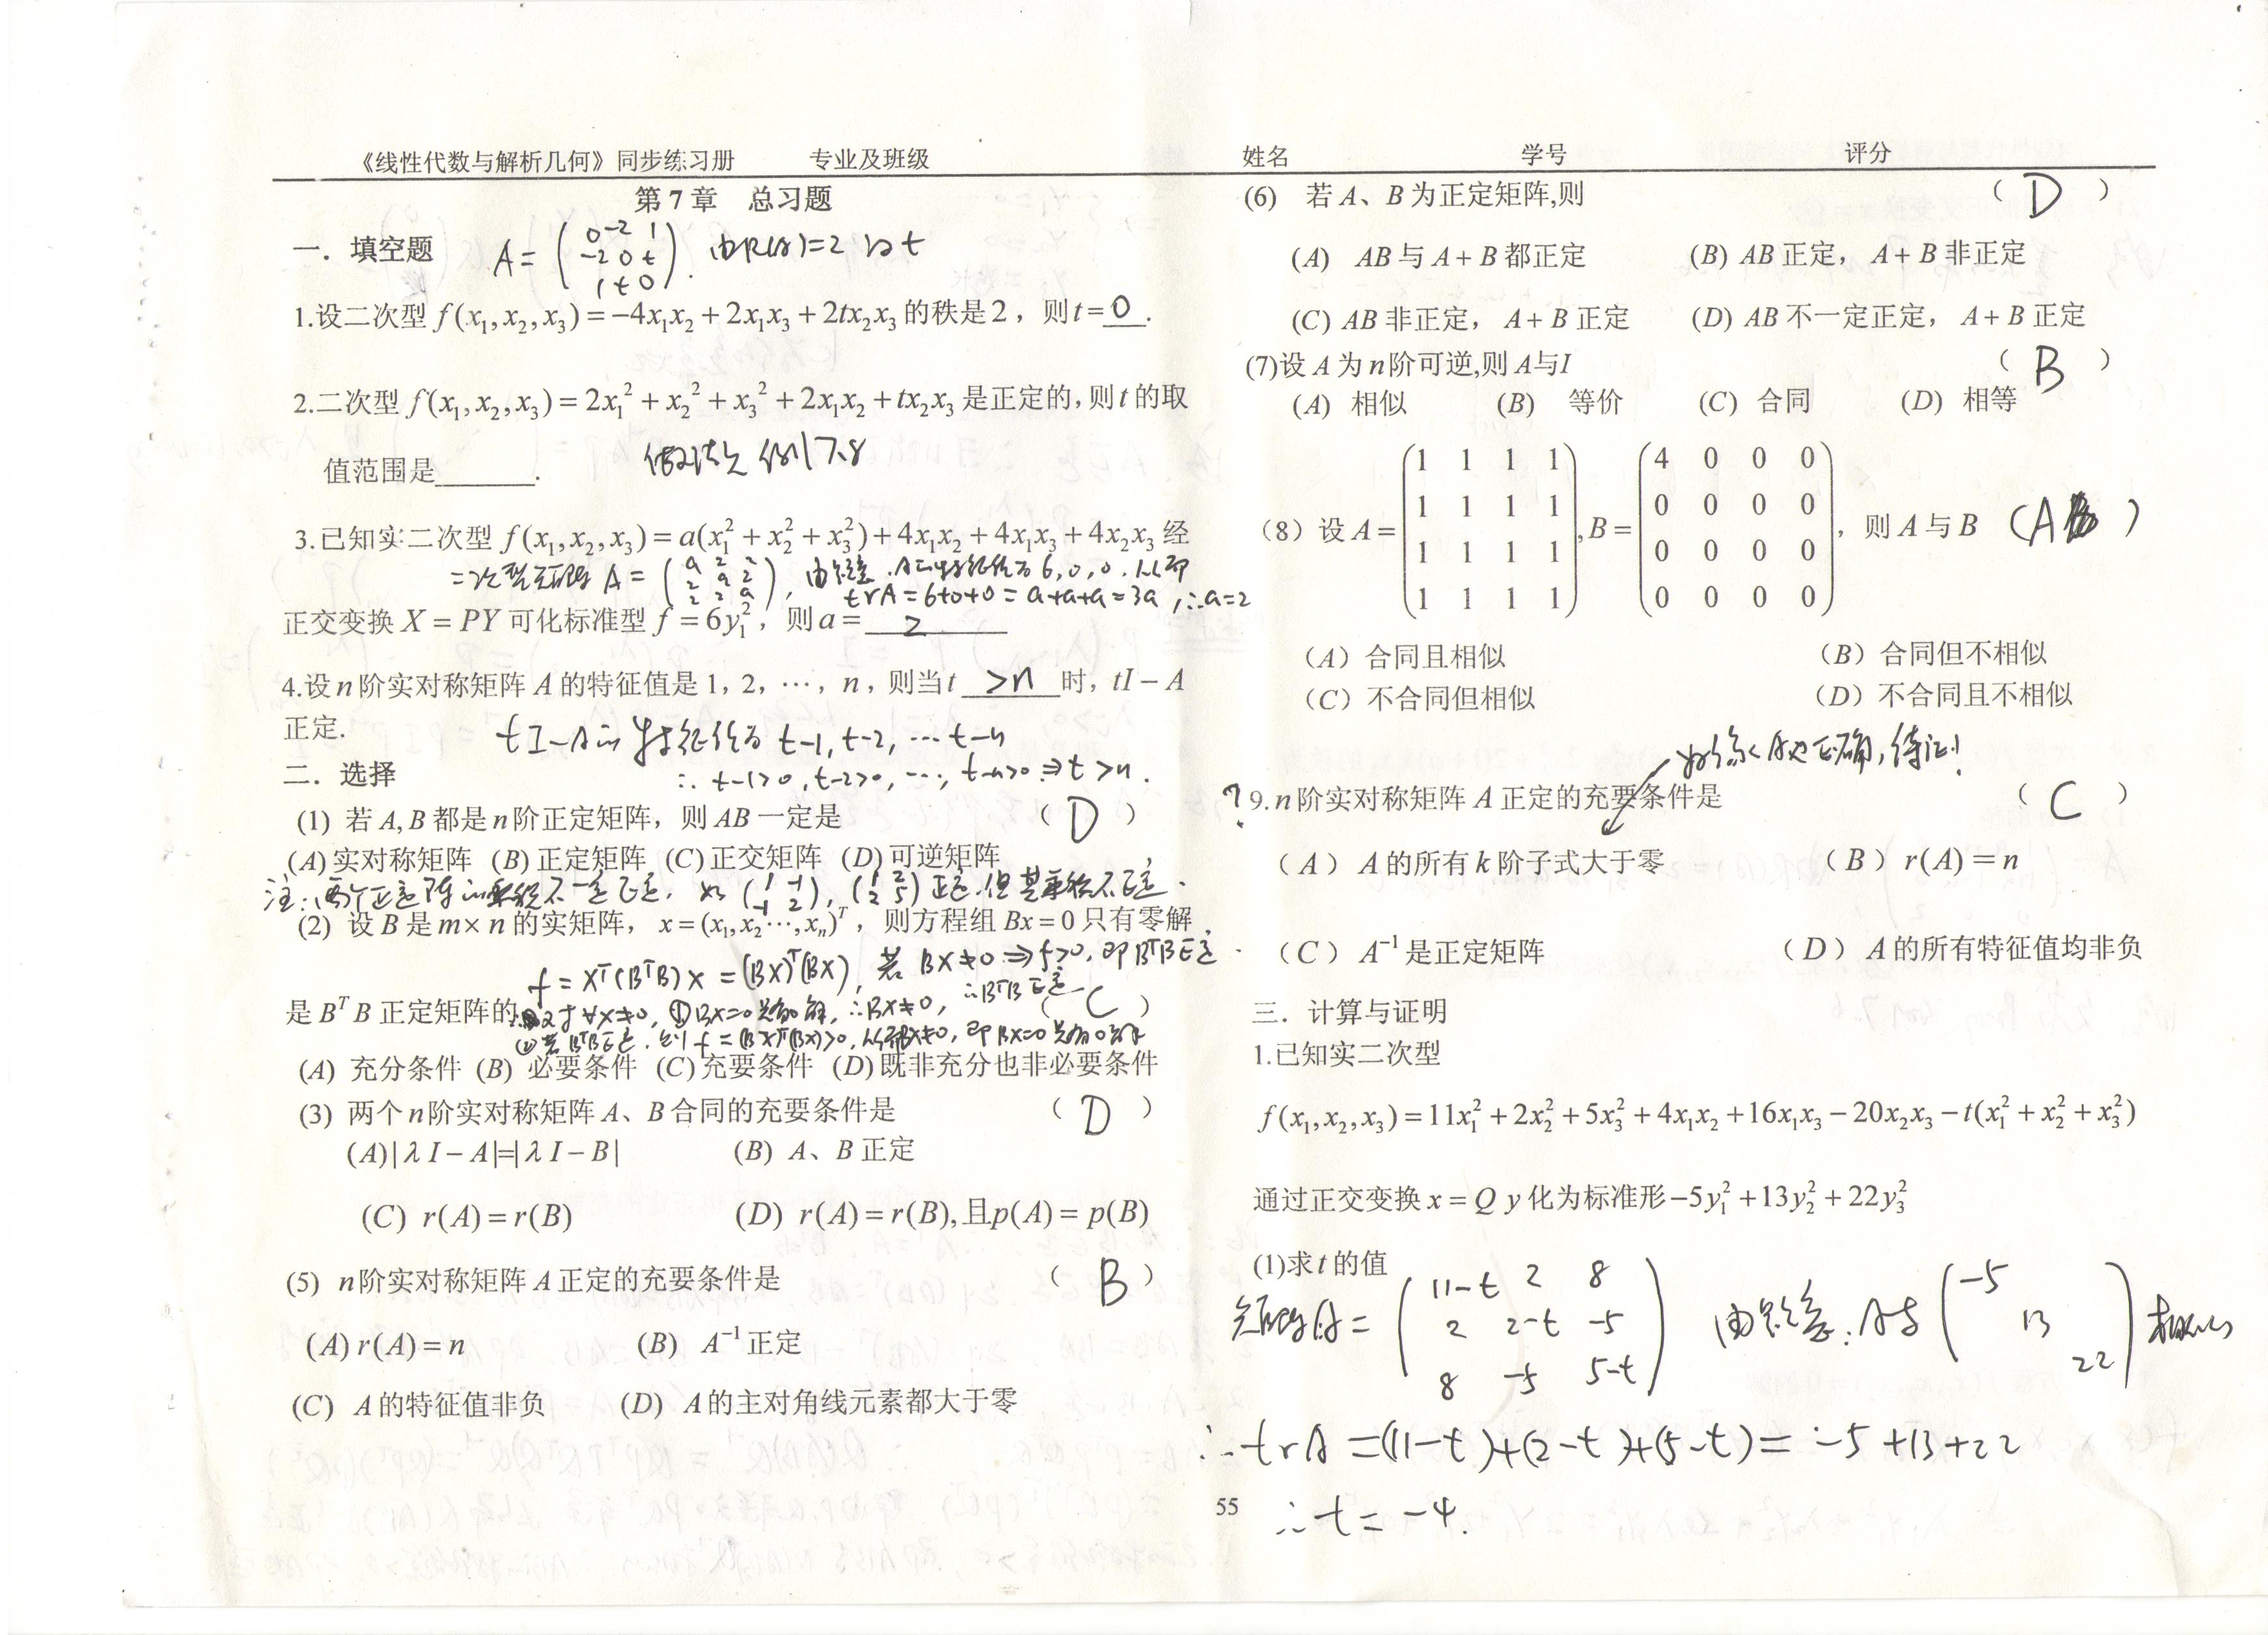 《线性代数与解析几何》同步练习册 专业及班级 姓名 学号 评分
第 7 章 总习题
一．填空题
A = (0 -2 1; -2 0 t; 1 t 0). 由R(A)=2 得 t
1.设二次型 f(x₁,x₂,x₃) = −4x₁x₂ + 2x₁x₃ + 2tx₂x₃ 的秩是 2，则 t = 0 .
2.二次型 f(x₁,x₂,x₃) = 2x₁² + x₂² + x₃² + 2x₁x₂ + tx₂x₃ 是正定的，则 t 的取
值范围是______. 做法见例7.8
3.已知实二次型 f(x₁,x₂,x₃) = a(x₁² + x₂² + x₃²) + 4x₁x₂ + 4x₁x₃ + 4x₂x₃ 经
二次型矩阵 A = (a 2 2; 2 a 2; 2 2 a), 由题意，A的特征值为 6, 0, 0. 从而
trA = 6+0+0 = a+a+a = 3a, ∴a=2
正交变换 X = PY 可化标准型 f = 6y₁²，则 a = 2
4.设 n 阶实对称矩阵 A 的特征值是 1，2，⋯，n，则当 t >n 时，tI − A
正定.
tI−A的特征值为 t−1, t−2, ⋯ t−n
∴ t−1>0, t−2>0, ⋯, t−n>0 ⇒ t>n.
二．选择
(1) 若 A,B 都是 n 阶正定矩阵，则 AB 一定是 ( D )
(A) 实对称矩阵 (B) 正定矩阵 (C) 正交矩阵 (D) 可逆矩阵
注：两个正定阵的乘积不一定正定，如 (1 -1; -1 2), (1 2; 2 5) 正定，但其乘积不正定.
(2) 设 B 是 m× n 的实矩阵，x = (x₁,x₂⋯,xₙ)ᵀ，则方程组 Bx = 0 只有零解
f = Xᵀ(BᵀB)X = (BX)ᵀ(BX), 若 BX≠0 ⇒ f>0, 即BᵀB正定.
是 BᵀB 正定矩阵的 ( C )
对∀X≠0, ①BX=0只有0解, ∴BX≠0, ∴BᵀB正定
②若BᵀB正定, 则 f = (BX)ᵀ(BX)>0, 从而BX≠0, 即BX=0只有0解
(A) 充分条件 (B) 必要条件 (C) 充要条件 (D) 既非充分也非必要条件
(3) 两个 n 阶实对称矩阵 A、B 合同的充要条件是 ( D )
(A) | λ I − A |=| λ I − B | (B) A、B 正定
(C) r(A) = r(B) (D) r(A) = r(B), 且p(A) = p(B)
(5) n 阶实对称矩阵 A 正定的充要条件是 ( B )
(A) r(A) = n (B) A⁻¹ 正定
(C) A 的特征值非负 (D) A 的主对角线元素都大于零
(6) 若 A、B 为正定矩阵,则 ( D )
(A) AB 与 A + B 都正定 (B) AB 正定，A + B 非正定
(C) AB 非正定，A + B 正定 (D) AB 不一定正定，A + B 正定
(7)设 A 为 n 阶可逆,则 A与I ( B )
(A) 相似 (B) 等价 (C) 合同 (D) 相等
(8) 设 A = (1 1 1 1; 1 1 1 1; 1 1 1 1; 1 1 1 1), B = (4 0 0 0; 0 0 0 0; 0 0 0 0; 0 0 0 0)，则 A 与 B ( A )
(A) 合同且相似 (B) 合同但不相似
(C) 不合同但相似 (D) 不合同且不相似
好像A也正确, 待证!
? 9. n 阶实对称矩阵 A 正定的充要条件是 ( C )
(A) A 的所有 k 阶子式大于零 (B) r(A) = n
(C) A⁻¹ 是正定矩阵 (D) A 的所有特征值均非负
三．计算与证明
1.已知实二次型
f(x₁,x₂,x₃) = 11x₁² + 2x₂² + 5x₃² + 4x₁x₂ +16x₁x₃ − 20x₂x₃ − t(x₁² + x₂² + x₃²)
通过正交变换 x = Q y 化为标准形 −5y₁² +13y₂² + 22y₃²
(1)求 t 的值
矩阵A = (11−t 2 8; 2 2−t −5; 8 −5 5−t) 由题意: A与 (−5 13 22) 相似
∴ trA = (11−t)+(2−t)+(5−t) = −5+13+22
∴ t = −4.
55